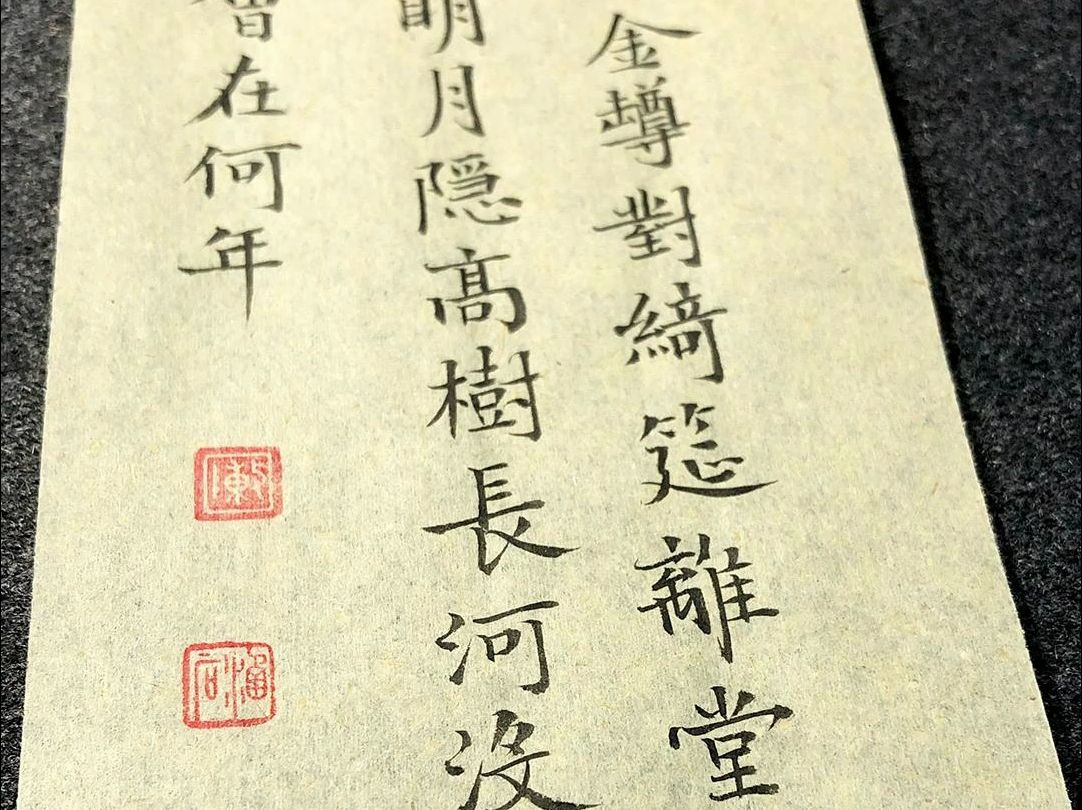 金樽對綺筵離堂
明月隱高樹長河沒
在何年